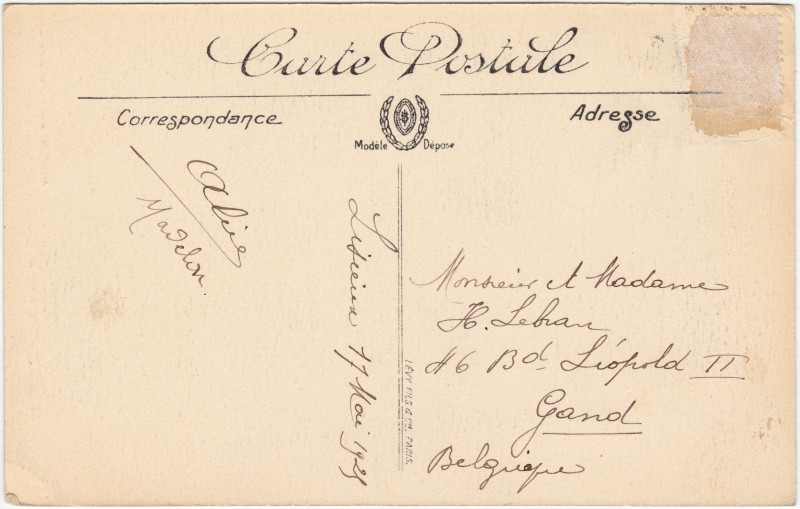 Carte Postale
Correspondance
Adresse
Modèle Déposé
Madelon.
Lisieux 17 Mai 1925
LÉVY FILS & Cie, PARIS.
Monsieur et Madame
H. Lebrun
46 Bd. Léopold II
Gand
Belgique